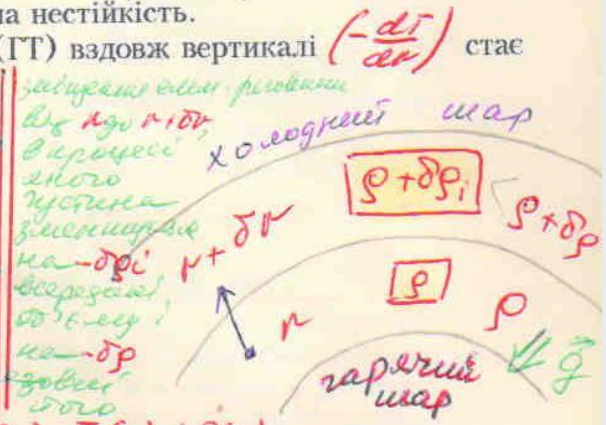 на нестійкість.
(ГТ) вздовж вертикалі (-dT/dr) стає
зміщення елем. речовини
від r до r+δr,
в процесі
якого
густина
зменшилась
на -δρi
всередині
об'єму і
на -δρ
ззовні
його
холодний шар
ρ+δρi
ρ+δρ
r+δr
ρ
r
ρ
гарячий
шар
g